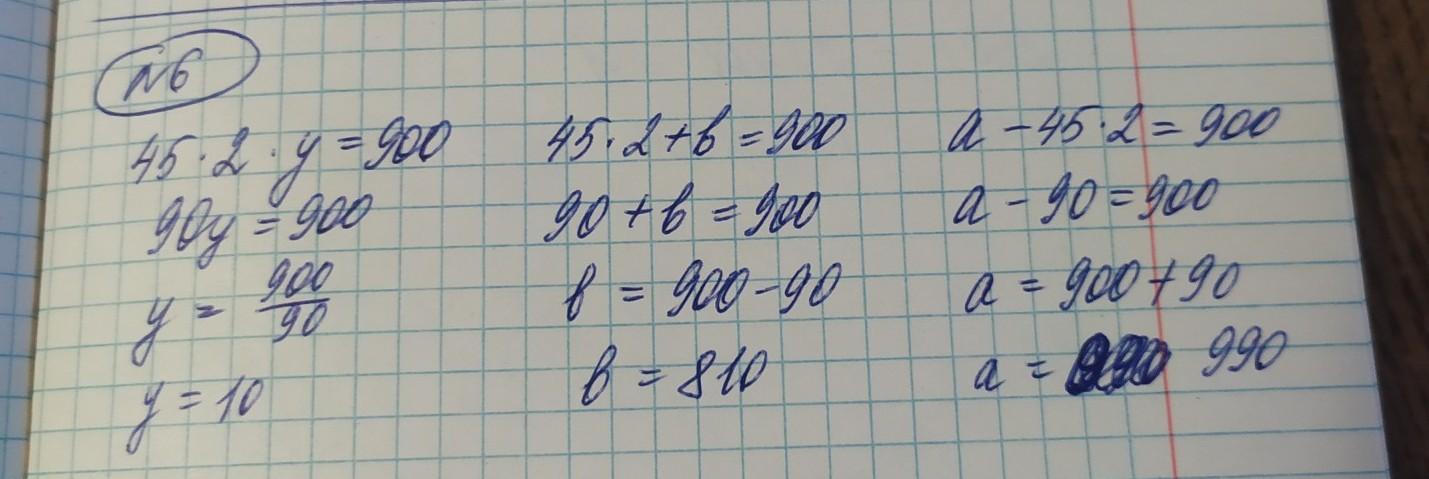 №6
45·2·y=900
90y=900
y = 900/90
y = 10
45·2+b=900
90+b=900
b = 900-90
b = 810
a-45·2=900
a-90=900
a = 900+90
a = 990